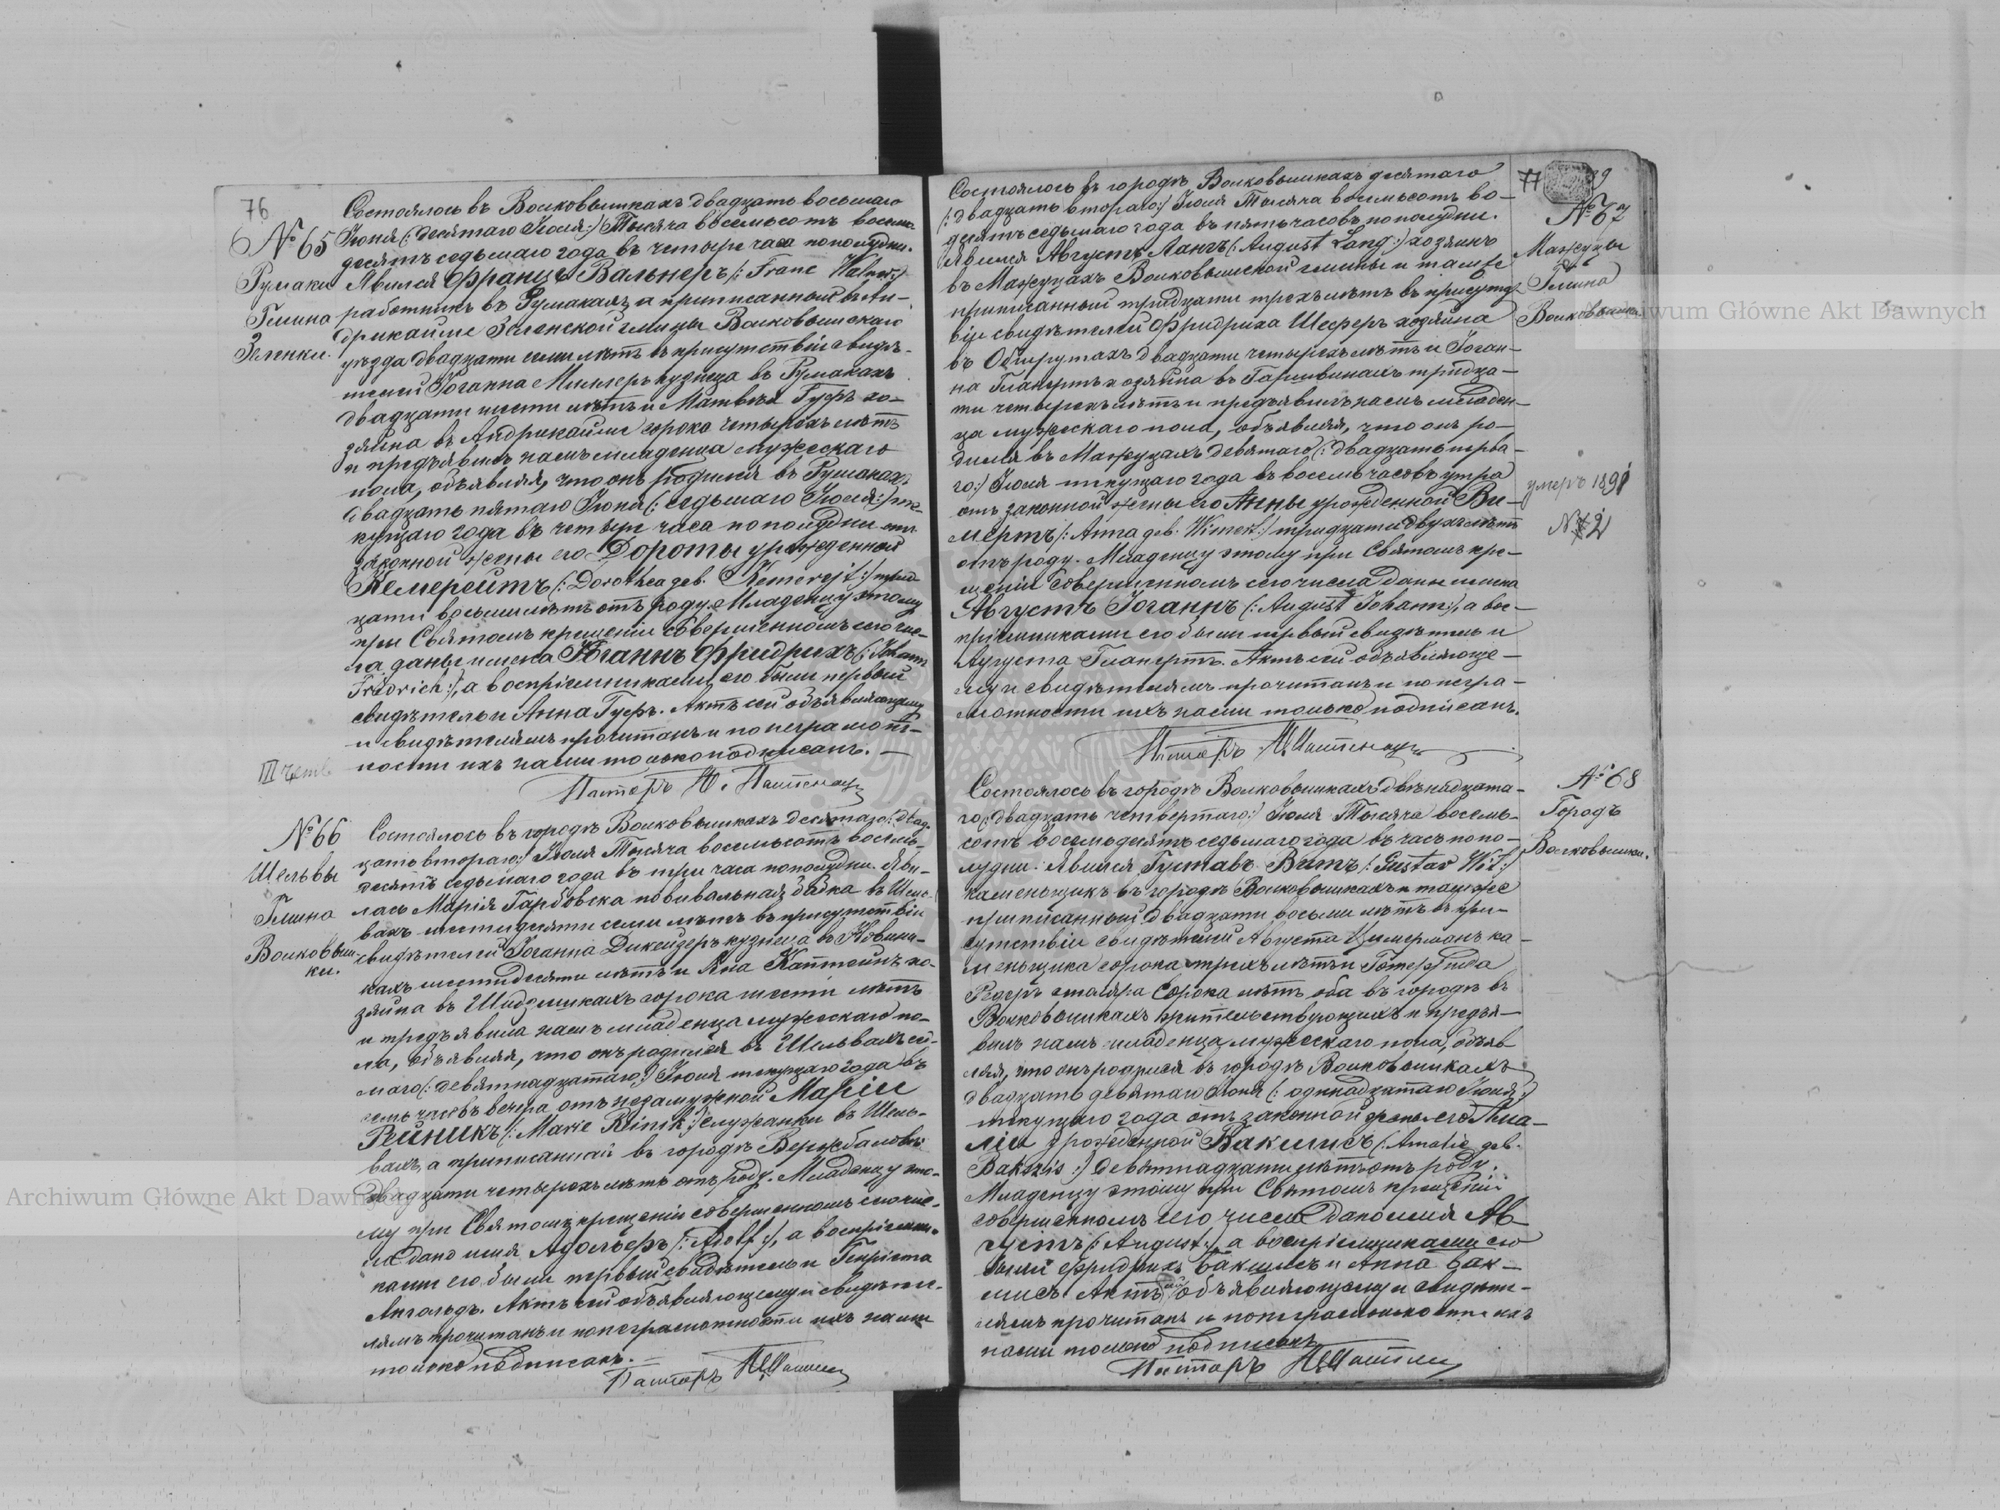 76
№ 65
Румаки
Гмина
Зеленки.
Состоялось въ Волковышкахъ двадцать восьмаго
Іюня (: десятаго Іюля :) Тысяча восемьсотъ восемь-
десятъ седьмаго года въ четыре часа пополудни.
Явился Францъ Вальнеръ (: Franc Walner :)
работникъ въ Румакахъ а приписанный въ Ан-
дрикайме Зеленской гмины Волковышскаго
уѣзда двадцати семи лѣтъ въ присутствіи свидѣ-
телей Іоганна Миллеръ кузнеца въ Румакахъ
двадцати шести лѣтъ и Матвѣя Гуфъ хо-
зяина въ Андрикайме сорока четырехъ лѣтъ
и предъявилъ намъ младенца мужескаго
пола, объявляя, что онъ родился въ Румакахъ
двадцать пятаго Іюня (: седьмаго Іюля :) те-
кущаго года въ четыре часа пополудни отъ
законной жены его Дороты урожденной
Кемерейтъ (: Dorothea geb. Kemerejt :) трид-
цати восьми лѣтъ отъ роду. Младенцу этому
при Святомъ крещеніи совершенномъ сего чис-
ла даны имена Іоганнъ Фридрихъ (: Johann
Fridrich :), а воспріемниками его были первый
свидѣтель и Анна Гуфъ. Актъ сей объявляющему
и свидѣтелямъ прочитанъ и по неграмот-
ности ихъ нами только подписанъ. —
Пасторъ
III четв
№ 66
Шельвы
Гмина
Волковыш-
ки.
Состоялось въ городѣ Волковышкахъ десятаго (: двад-
цать втораго :) Іюля Тысяча восемьсотъ восемь-
десятъ седьмаго года въ три часа пополудни. Яви-
лась Марія Гарбовска повивальная бабка въ Шель-
вахъ шестидесяти семи лѣтъ въ присутствіи
свидѣтелей Іоганна Диксцеръ кузнеца въ
кахъ шестидесяти лѣтъ и Яна хо-
зяина въ сорока шести лѣтъ
и предъявила намъ младенца мужескаго по-
ла, объявляя, что онъ родился въ Шельвахъ седь-
маго (: девятнадцатаго :) Іюля текущаго года въ
семь часовъ вечера отъ незамужней Маріи
Рейникъ (: Marie Reinik :) служанки въ Шель-
вахъ, а приписанной въ городѣ Вержболовѣ
двадцати четырехъ лѣтъ отъ роду. Младенцу это-
му при Святомъ крещеніи совершенномъ сего чис-
ла дано имя Адольфъ (: Adolf :), а воспріемни-
ками его были первый свидѣтель и Генріета
Ангольдъ. Актъ сей объявляющему и свидѣте-
лямъ прочитанъ и по неграмотности ихъ нами
только подписанъ. —
Пасторъ
77
№ 67
Мажуцы
Гмина
Волковышки
умеръ 1891
№ 2
Состоялось въ городѣ Волковышкахъ десятаго
(: двадцать втораго :) Іюля Тысяча восемьсотъ во-
десятъ седьмаго года въ пять часовъ пополудни.
Явился Августъ Лангъ (: August Lang :) хозяинъ
въ Мажуцахъ Волковышской гмины и тамже
приписанный тридцати трехъ лѣтъ въ присутст-
віи свидѣтелей Фридриха Шеферъ хозяина
въ Обшрутахъ двадцати четырехъ лѣтъ и Іоган-
на Гланертъ хозяина въ тридца-
ти четырехъ лѣтъ и предъявилъ намъ младен-
ца мужескаго пола, объявляя, что онъ ро-
дился въ Мажуцахъ девятаго (: двадцать перва-
го :) Іюля текущаго года въ восемь часовъ утра
отъ законной жены его Анны урожденной Ви-
мертъ (: Anna geb. Wimert :) тридцати двухъ лѣтъ
отъ роду. Младенцу этому при Святомъ кре-
щеніи совершенномъ сего числа даны имена
Августъ Іоганнъ (: August Johann :), а вос-
пріемниками его были первый свидѣтель и
Августа Гланертъ. Актъ сей объявляюще-
му и свидѣтелямъ прочитанъ и по негра-
мотности ихъ нами только подписанъ.
Пасторъ
№ 68
Городъ
Волковышки.
Состоялось въ городѣ Волковышкахъ двѣнадцата-
го (: двадцать четвертаго :) Іюля Тысяча восемь-
сотъ восемьдесятъ седьмаго года въ часъ попо-
лудни. Явился Густавъ Витъ (: Gustav Wit :)
каменьщикъ въ городѣ Волковышкахъ и тамже
приписанный двадцати восьми лѣтъ въ при-
сутствіи свидѣтелей Августа Цимерманъ ка-
меньщика сорока трехъ лѣтъ и Готфрида
столяра сорока лѣтъ оба въ городѣ въ
Волковышкахъ жительствующихъ и предъя-
вилъ намъ младенца мужескаго пола, объяв
ляя, что онъ родился въ городѣ Волковышкахъ
двадцать девятаго Іюня (: одинадцатаго Іюля :)
текущаго года отъ законной жены его Ама-
ліи урожденной Бакшисъ (: Amalie geb.
Bakszis :) девятнадцати лѣтъ отъ роду.
Младенцу этому при Святомъ крещеніи
совершенномъ сего числа дано имя Ав-
густъ (: August :), а воспріемниками его
были Фридрихъ Бакшисъ и Анна Бак-
шисъ. Актъ сей объявляющему и свидѣте-
лямъ прочитанъ и по неграмотности ихъ
нами только подписанъ
Пасторъ
Archiwum Główne Akt Dawnych
Archiwum Główne Akt Dawnych